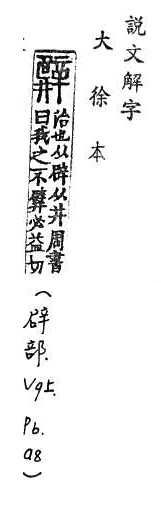 說文解字
大徐本
治也从辟从井周書
曰我之不𨐨必益切
(辟部.
V9上.
P6.
a8)